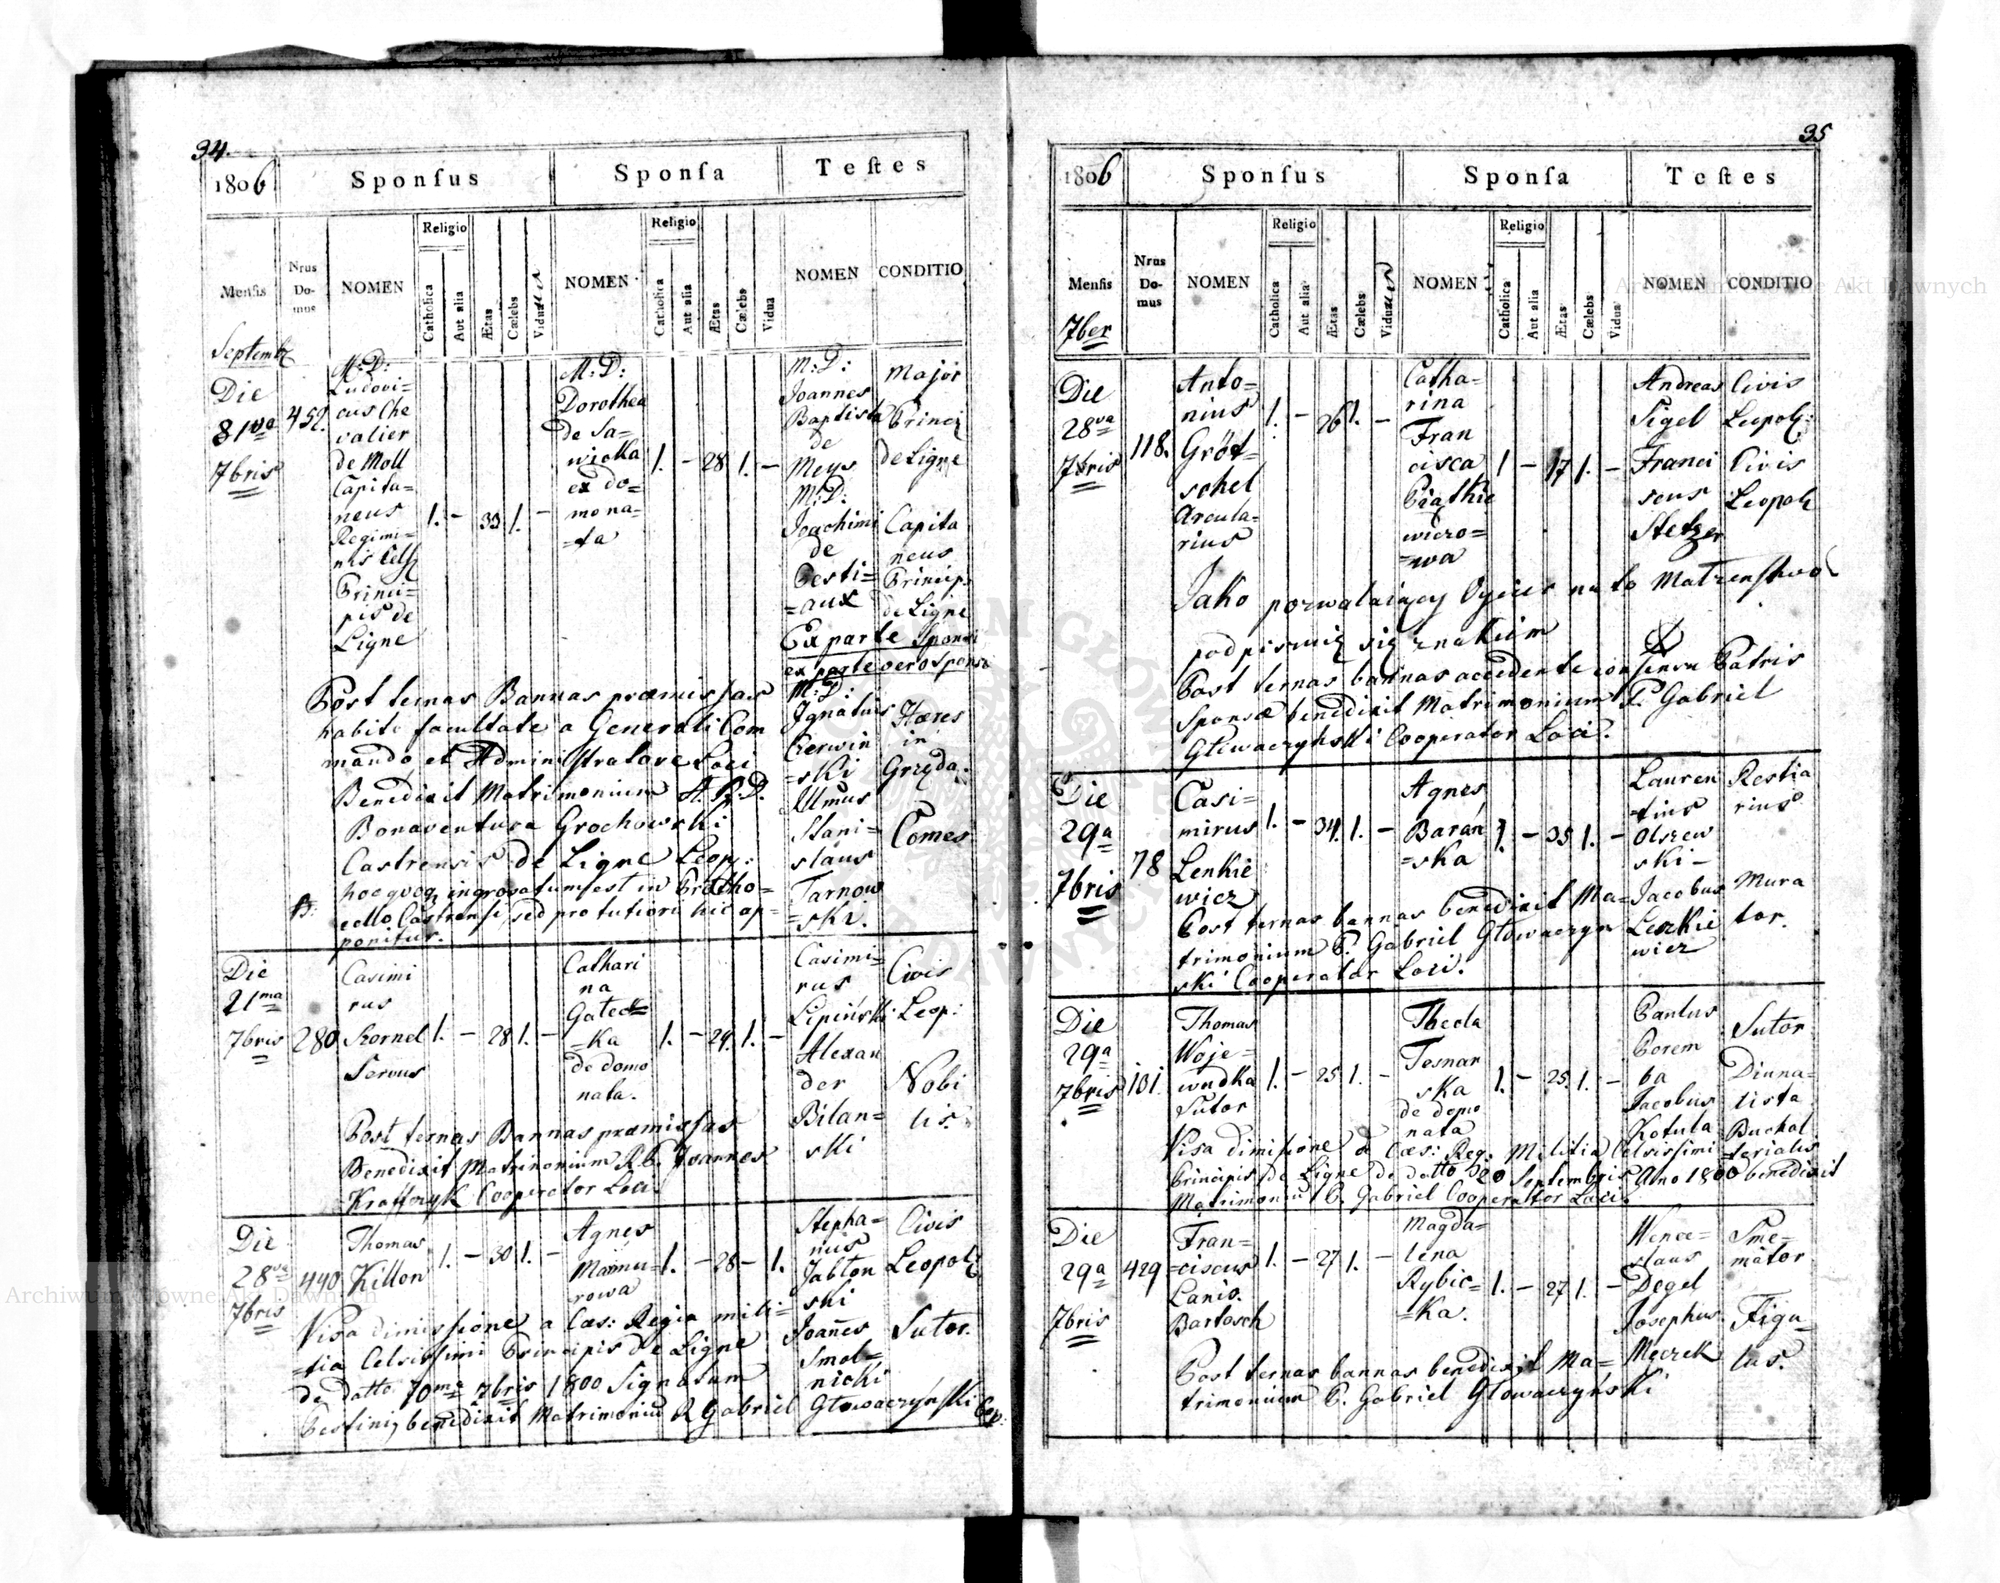 34.
1806 Sponſus Sponſa Teſtes
Religio Religio
Menſis Nrus Domus NOMEN Catholica Aut alia Ætas Cælebs Viduus NOMEN Catholica Aut alia Ætas Cælebs Vidua NOMEN CONDITIO
Septemb
Die
7bris
452.
M: D:
Ludovi=
cus Che
valier
de Moll
Capita=
neus
Regimi=
nis Cels
Princi=
pis de
Ligne
1. – 33 1. –
M: D:
Dorothea
de Sa=
wicka
ex do=
mo na=
=ta
1. – 28 1. –
M: D:
Joannes
Baptista
de
Meys
M: D:
Joachimi
de
Pesti=
=aux
Ex parte Sponsi
ex parte vero Sponsæ
M: D:
Ignatius
Czerwin
=ski
Illmus
Stani=
slaus
Tarnow
=ski.
Major
Princi
de Ligne
Capita
neus
Princip
de Ligne
Hæres
in
Grzęda.
Comes
Post ternas Bannas præmissas
habita facultate a Generali Com
mando et Administratore Loci
Benedixit Matrimonium A. R. D.
Bonaventura Grochowski
Castrensis de Ligne Leop:
hocqvoq ingrosatum est in Protho=
collo Castrensi, sed pro tutiori hic ap=
ponitur.
Die
21ma
7bris
280
Casimi
rus
Kornel
Servus
1. – 28 1. –
Cathari
na
Gateck
=ka
de domo
nata.
1. – 24. 1. –
Casimi=
rus
Lipiński
Alexan
der
Bilan=
ski
Civis
Leop:
Nobi
lis.
Post ternas Bannas præmissas
Benedixit Matrimonium R. P. Joannes
Krattczyk Cooperator Loci.
Die
28va
7bris
440
Thomas
Killon
1. – 30 1. –
Agnes
Marmu=
rowa
1. – 28 – 1.
Stepha=
nus
Jablon
ski
Joanes
Smol=
nicki
Civis
Leopol
Sutor.
Visa dimissione a Cæs: Regia mili=
=tia Celsissimi Principis de Ligne
de datto 10ma 7bris 1800 Signatum
benedixit Matrimoniu P. Gabriel Głowaczyński Cop:
35
1806 Sponſus Sponſa Teſtes
Religio Religio
Menſis Nrus Domus NOMEN Catholica Aut alia Ætas Cælebs Viduus NOMEN Catholica Aut alia Ætas Cælebs Vidua NOMEN CONDITIO
7ber
Die
28va
7bris
118.
Anto=
nius
Gröt=
schel
Arcula=
rius
1. – 26 1. –
Catha=
rina
Fran
cisca
Piątkie
wiczo=
=wa
1 – 17 1. –
Andreas
Sigel
Franci
scus
Stetzer
Civis
Leopol:
Civis
Leopol
Jako pozwalaiący Oyciec na to Małżeństwo
podpisuię się znakiem
Post ternas bannas accedente consensu Patris
Sponsæ benedixit Matrimonium P. Gabriel
Głowaczyński Cooperator Loci.
Die
29a
7bris
78
Casi=
mirus
Lenkie
wicz
1. – 34. 1. –
Agnes
Barań
=ska
1. – 35 1. –
Lauren
tius
Olszew
ski –
Jacobus
Leszkie
wicz
Restia
rius
Mura
tor.
Post ternas bannas benedixit Ma=
trimonium P. Gabriel Głowaczyń
ski Cooperator Loci.
Die
29a
7bris
101
Thomas
Woje=
wudka
Sutor
1. – 25 1. –
Thecla
Tesnar
ska
de domo
nata
1. – 25. 1. –
Paulus
Porem
ba
Jacobus
Kotula
Sutor
Diurna=
lista
Buchal
terialis
Visa dimissione a Cæs: Reg: Militia Celsissimi
Principis De Ligne De datto 20 Septembris Ano 1800 benedixit
Matrimoniu P. Gabriel Cooperator Loci.
Die
29a
7bris
429
Fran=
=ciscus
Lanio.
Bartosch
1. – 27 1. –
Magda=
lena
Rybic=
=ka.
1. – 27 1. –
Wence=
slaus
Degel
Josephus
Męczek
Sme=
mator
Figu=
lus.
Post ternas bannas benedixit Ma=
trimonium P. Gabriel Głowaczyński
Archiwum Główne Akt Dawnych
Archiwum Główne Akt Dawnych